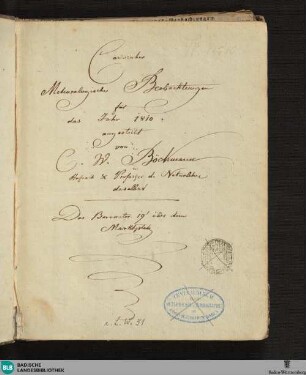 Carlsruher
Meteorologische Beobachtungen
für
das Jahr 1810
angestellt
von
C. W. Böckmann
Hofrath & Professor d. Naturlehre
daselbst
Das Barometer 19' über dem
Marktplatz
BLB BADISCHE
LANDESBIBLIOTHEK
Baden-Württemberg